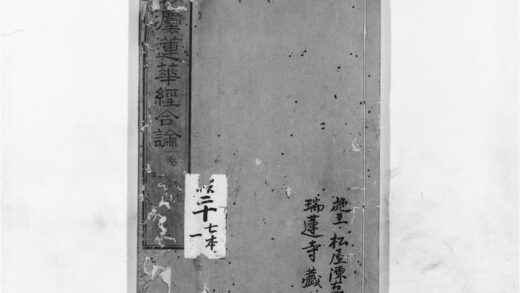 蓮華經合論
卷
二十七本
一
施主 松屋
瑞蓮寺藏